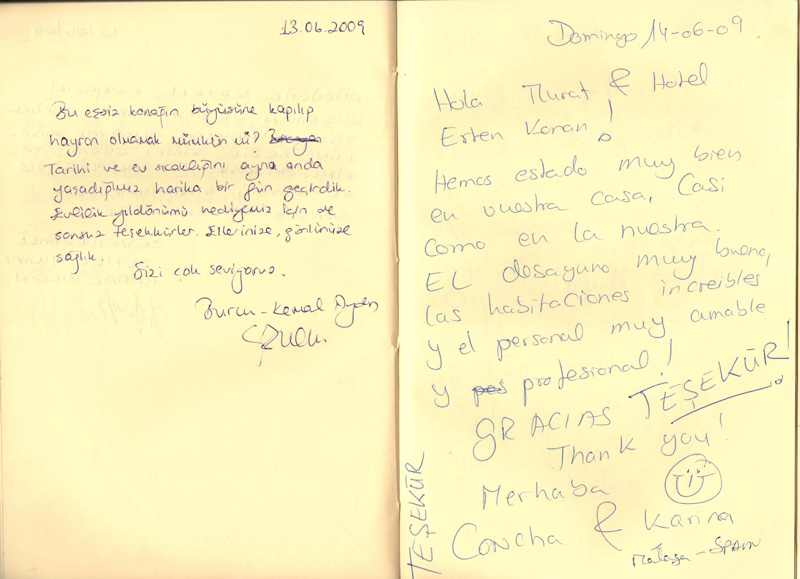 13.06.2009
Bu eşsiz konağın büyüsüne kapılıp
hayran olmamak mümkün mü?
Tarihi ve ev sıcaklığını aynı anda
yaşadığımız harika bir gün geçirdik.
Evlilik yıldönümü hediyemiz için de
sonsuz teşekkürler. Ellerinize, gönlünüze
sağlık.
Sizi çok seviyoruz.
Burcu - Kemal
Domingo 14-06-09.
Hola Murat & Hotel
Esten Konan!
Hemos estado muy bien
en vuestra casa, Casi
como en la nuestra.
EL desayuno muy bueno,
las habitaciones increibles
y el personal muy amable
y profesional!
GRACIAS TEŞEKÜR!
Thank you!
Merhaba
Concha & Karina
Málaga - SPAIN
TEŞEKÜR